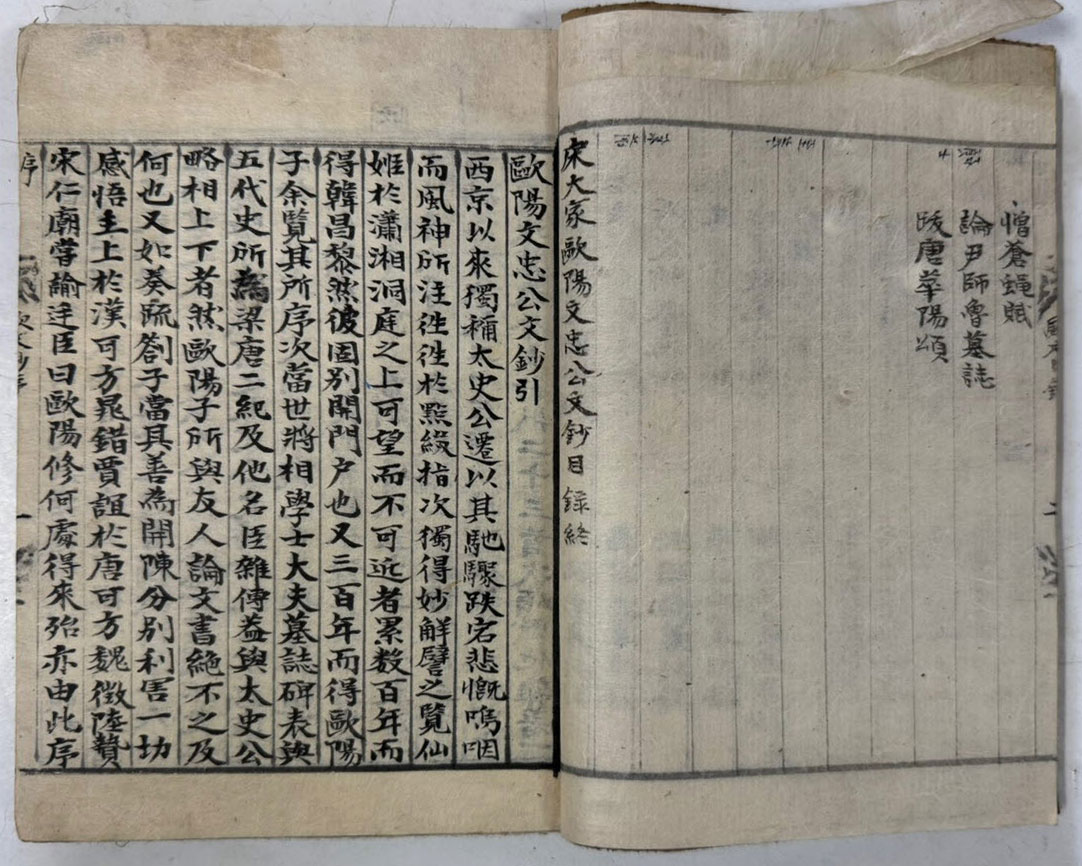 憎蒼蝇賦
論尹師魯墓誌
跋唐華陽頌
宋大家歐陽文忠公文鈔目録終
歐陽文忠公文鈔引
西京以來獨稱太史公遷以其馳驟跌宕悲慨嗚咽
而風神所注徃徃於㸃綴指次獨得妙解譬之覽仙
姬於瀟湘洞庭之上可望而不可近者累数百年而
得韓昌黎然彼固别開門户也又三百年而得歐陽
子余覽其所序次當世將相學士大夫墓誌碑表與
五代史所為梁唐二紀及他名臣雜傳蓋與太史公
略相上下者然歐陽子所與友人論文書絶不之及
何也又如奏疏劄子當其善為開陳分别利害一切
感悟主上於漢可方晁錯賈誼於唐可方魏徴陸贄
宋仁廟嘗諭廷臣曰歐陽修何處得來殆亦由此序
序